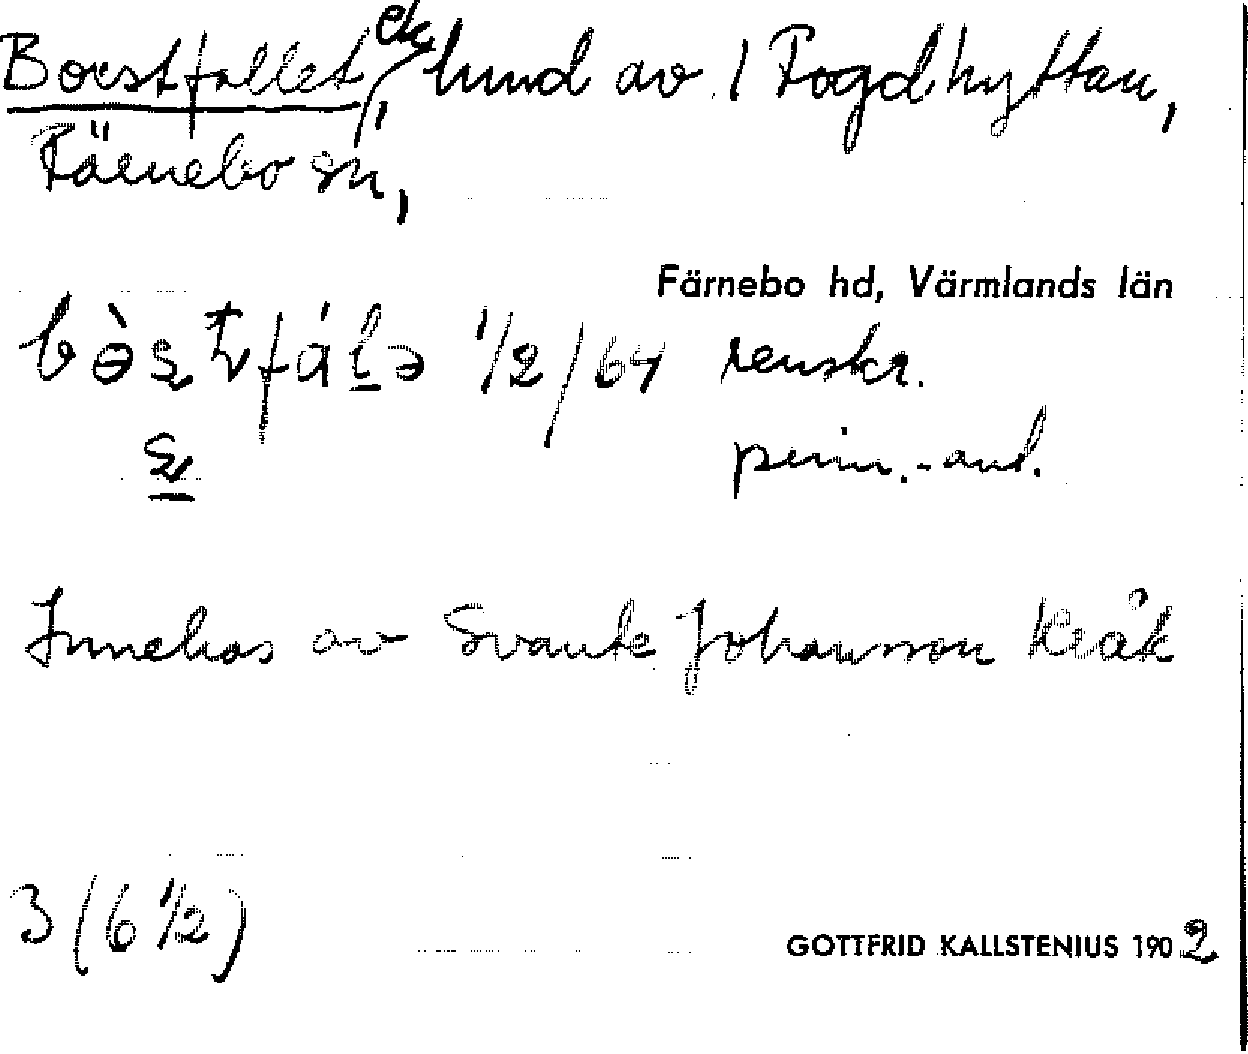 Borstfallet, ek, lund av 1 Fogdhyttan,
Färnebo sn,
Färnebo hd, Värmlands län
1/2/64 renskr.
Innehas av Svante Johansson Kråk
3 (6 1/2)
GOTTFRID KALLSTENIUS 1902